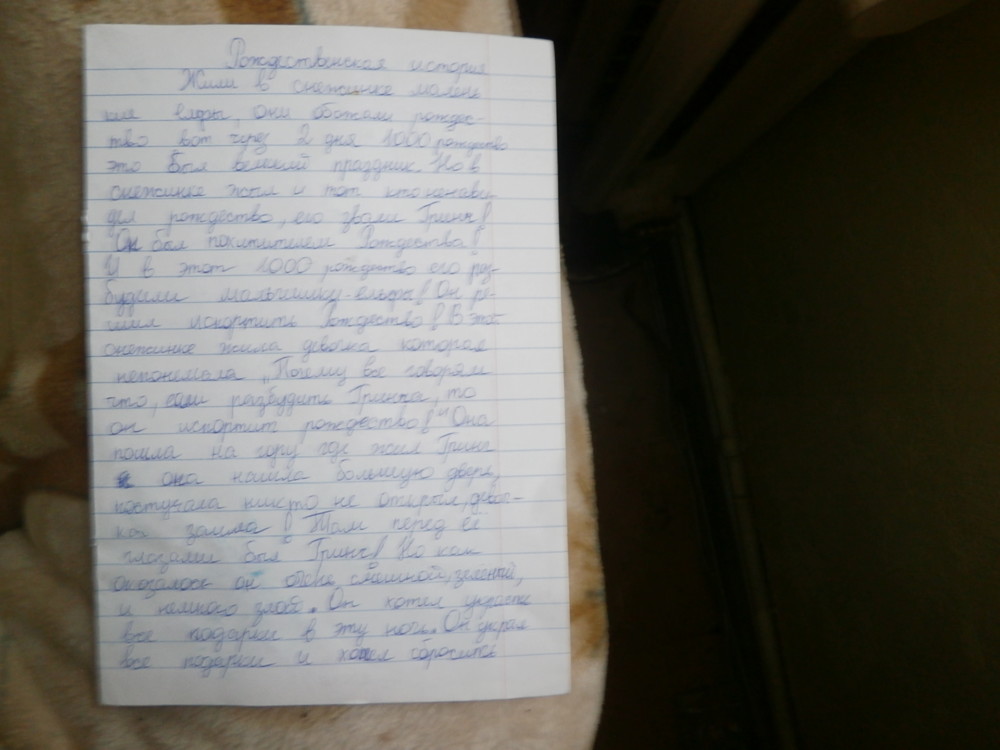 Рождественская история
Жили в снежинке малень
кие елфы, они обожали рождес-
тво вот через 2 дня 1000 рождество
это был великий праздник. Но в
снежинке жил и тот кто ненави
дел рождество, его звали Гринч!
Он был похитителем Рождества!
И в этот 1000 рождество его раз-
будили мальчишки-ельфы! Он ре-
шил испортить Рождество! В этой
снежинке жила девочка которая
непонемала „Почему все говорят
что, если разбудить Гринча, то
он испортит рождество!" Она
пошла на гору где жил Гринч
она нашла большую дверь,
постучала никто не открыл, девоч-
ка зашла! Там перед её
глазами был Гринч! Но как
оказалось он очень смешной, зелёный,
и немного злой. Он хотел украсть
все подарки в эту ночь. Он украл
все подарки и хотел сбросить